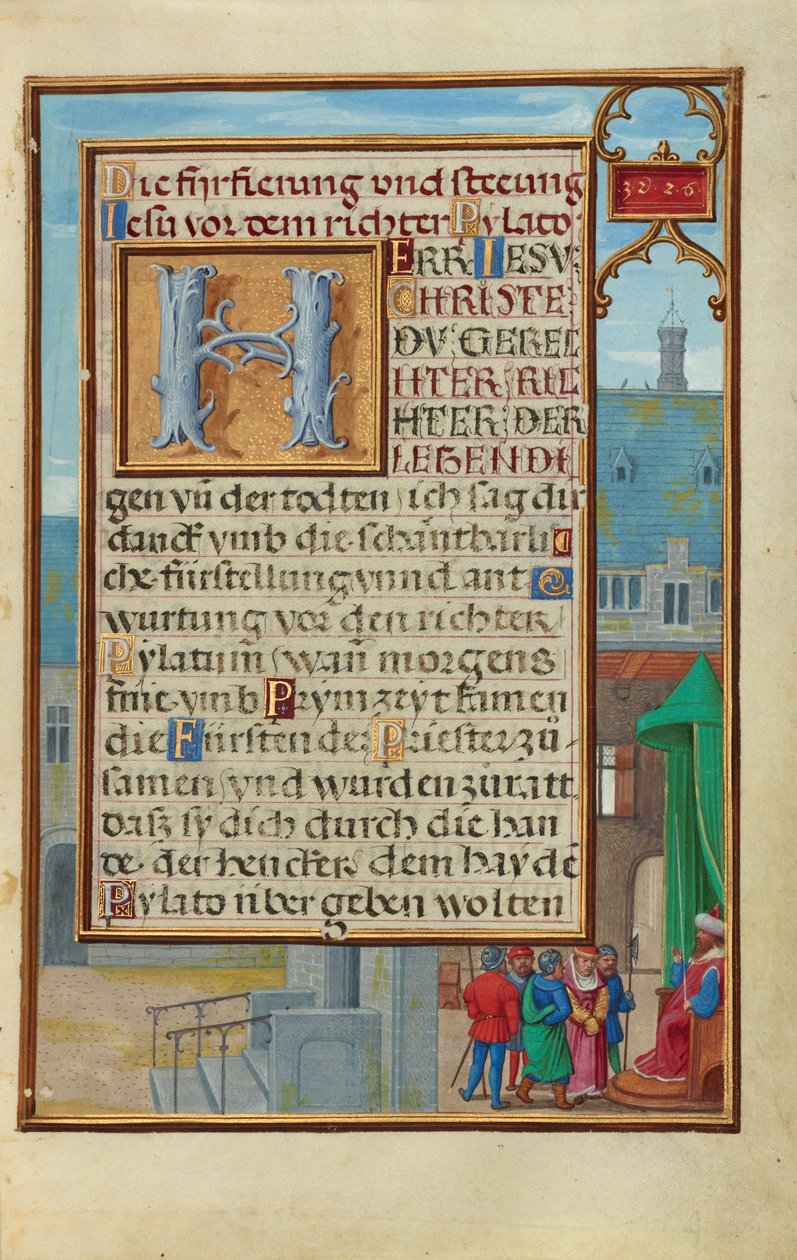 Die fürfierung vnd steeung
Iesu vor dem richter Pylato
HERR IESV:
CHRISTE
DV GEREC
HTER RIC
HTER DER
LEBENDI
gen vn̄ der todten ich sag dir
danck vmb die schantbarli
che fürstellung vnnd ant
wurtung vor den richter
Pylatum wan̄ morgens
frue vmb Prym zeyt kamen
die Fürsten der Priester zů-
samen vnd wurden zu ratt
dasz sy dich durch die han
de der hencker dem haydē
Pylato v̈ber geben wolten